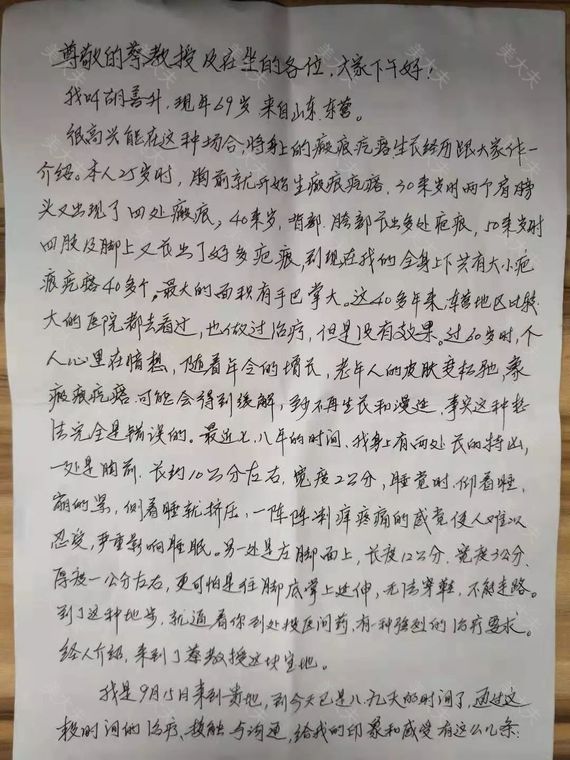 尊敬的蔡教授及在坐的各位,大家下午好!
我叫胡善升,现年69岁 来自山东、东营。
很高兴能在这种场合,将身上的瘢痕疙瘩生长经历跟大家作一
介绍。本人25岁时,胸前就开始生瘢痕疙瘩,30来岁时两个肩膀
头又出现了四处瘢痕,40来岁,背部、胯部长出多处疤痕,50来岁时
四肢及脚上又长出了好多疤痕,到现在我的全身上下共有大小疤
痕疙瘩40多个,最大的面积有手巴掌大。这40多年来,东营地区比较
大的医院都去看过,也做过治疗,但是没有效果。过60岁时,个
人心里在暗想,随着年令的增长,老年人的皮肤变松驰,象
瘢痕疙瘩可能会得到缓解,至少不再生长和漫延,事实这种想
法完全是错误的。最近七、八年的时间,我身有两处长的特出,
一处是胸前,长约10公分左右,宽度2公分,睡觉时,仰着睡,
崩的紧,侧着睡就挤压,一阵阵刺痒疼痛的感觉使人难以
忍受,严重影响睡眠。另一处是左脚面上,长度12公分、宽度3公分、
厚度一公分左右,更可怕是往脚底掌上延伸,无法穿鞋,不能走路。
到了这种地步,就逼着你到处投医问药,有一种强烈的治疗要求。
经人介绍,来到了蔡教授这块宝地。
我是9月15日来到贵地,到今天已是八、九天的时间了,通过这
段时间的治疗、接触与沟通,给我的印象和感受有这么几条:
美大夫